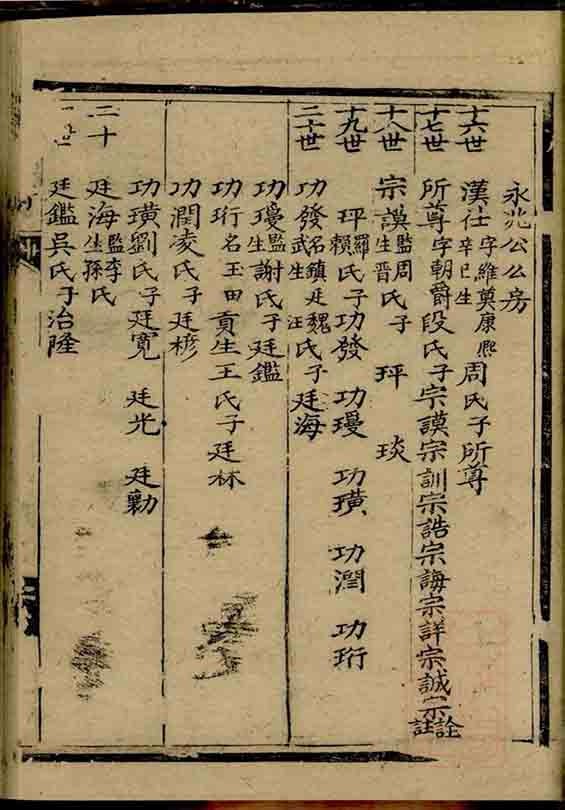 永兆公公房
十六世 漢仕 字維奠康熙辛巳生 周氏子所尊
十七世 所尊 字朝爵 段氏子宗謨宗訓宗誥宗誨宗詳宗誠宗詮註
十八世 宗謨 監生 周晋氏子 玶 琰
十九世 玶 羅賴氏子功發 功瓊 功璜 功潤 功珩
二十世 功發 名鎮廷武生 魏汪氏子廷海
功瓊 監生 謝氏子廷鑑
功珩 名玉田 貢生王氏子廷林
功潤凌氏子廷楌
功璜劉氏子廷寬 廷光 廷勷
二十 廷海 監生 李孫氏
廷鑑吳氏子治隆